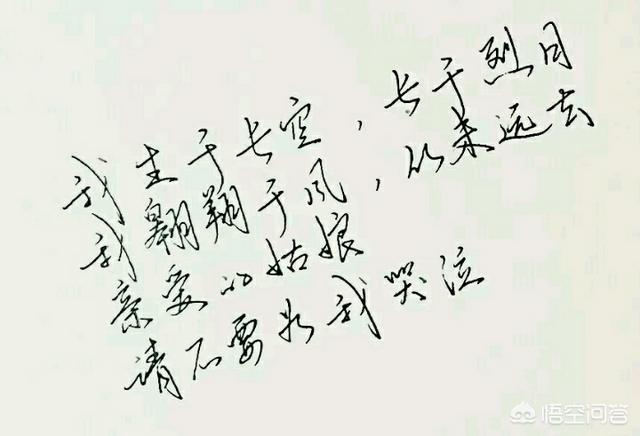 我生于长空，长于烈日
我翱翔于风，从未远去
亲爱的姑娘
请不要为我哭泣
悟空问答